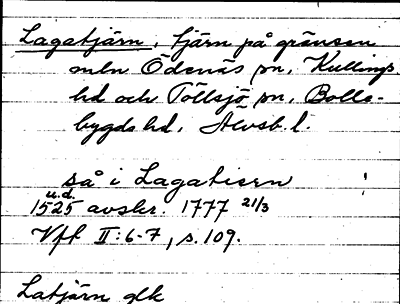 Lagatjärn, tjärn på gränsen
mln Ödenäs sn, Kullings
hd och Töllsjö sn, Bolle-
bygds hd, Älvsb. l.
så i Lagatiern
u.d.
1525 avskr. 1777 21/3
Vft II:6-7, s. 109.
Latjärn glk